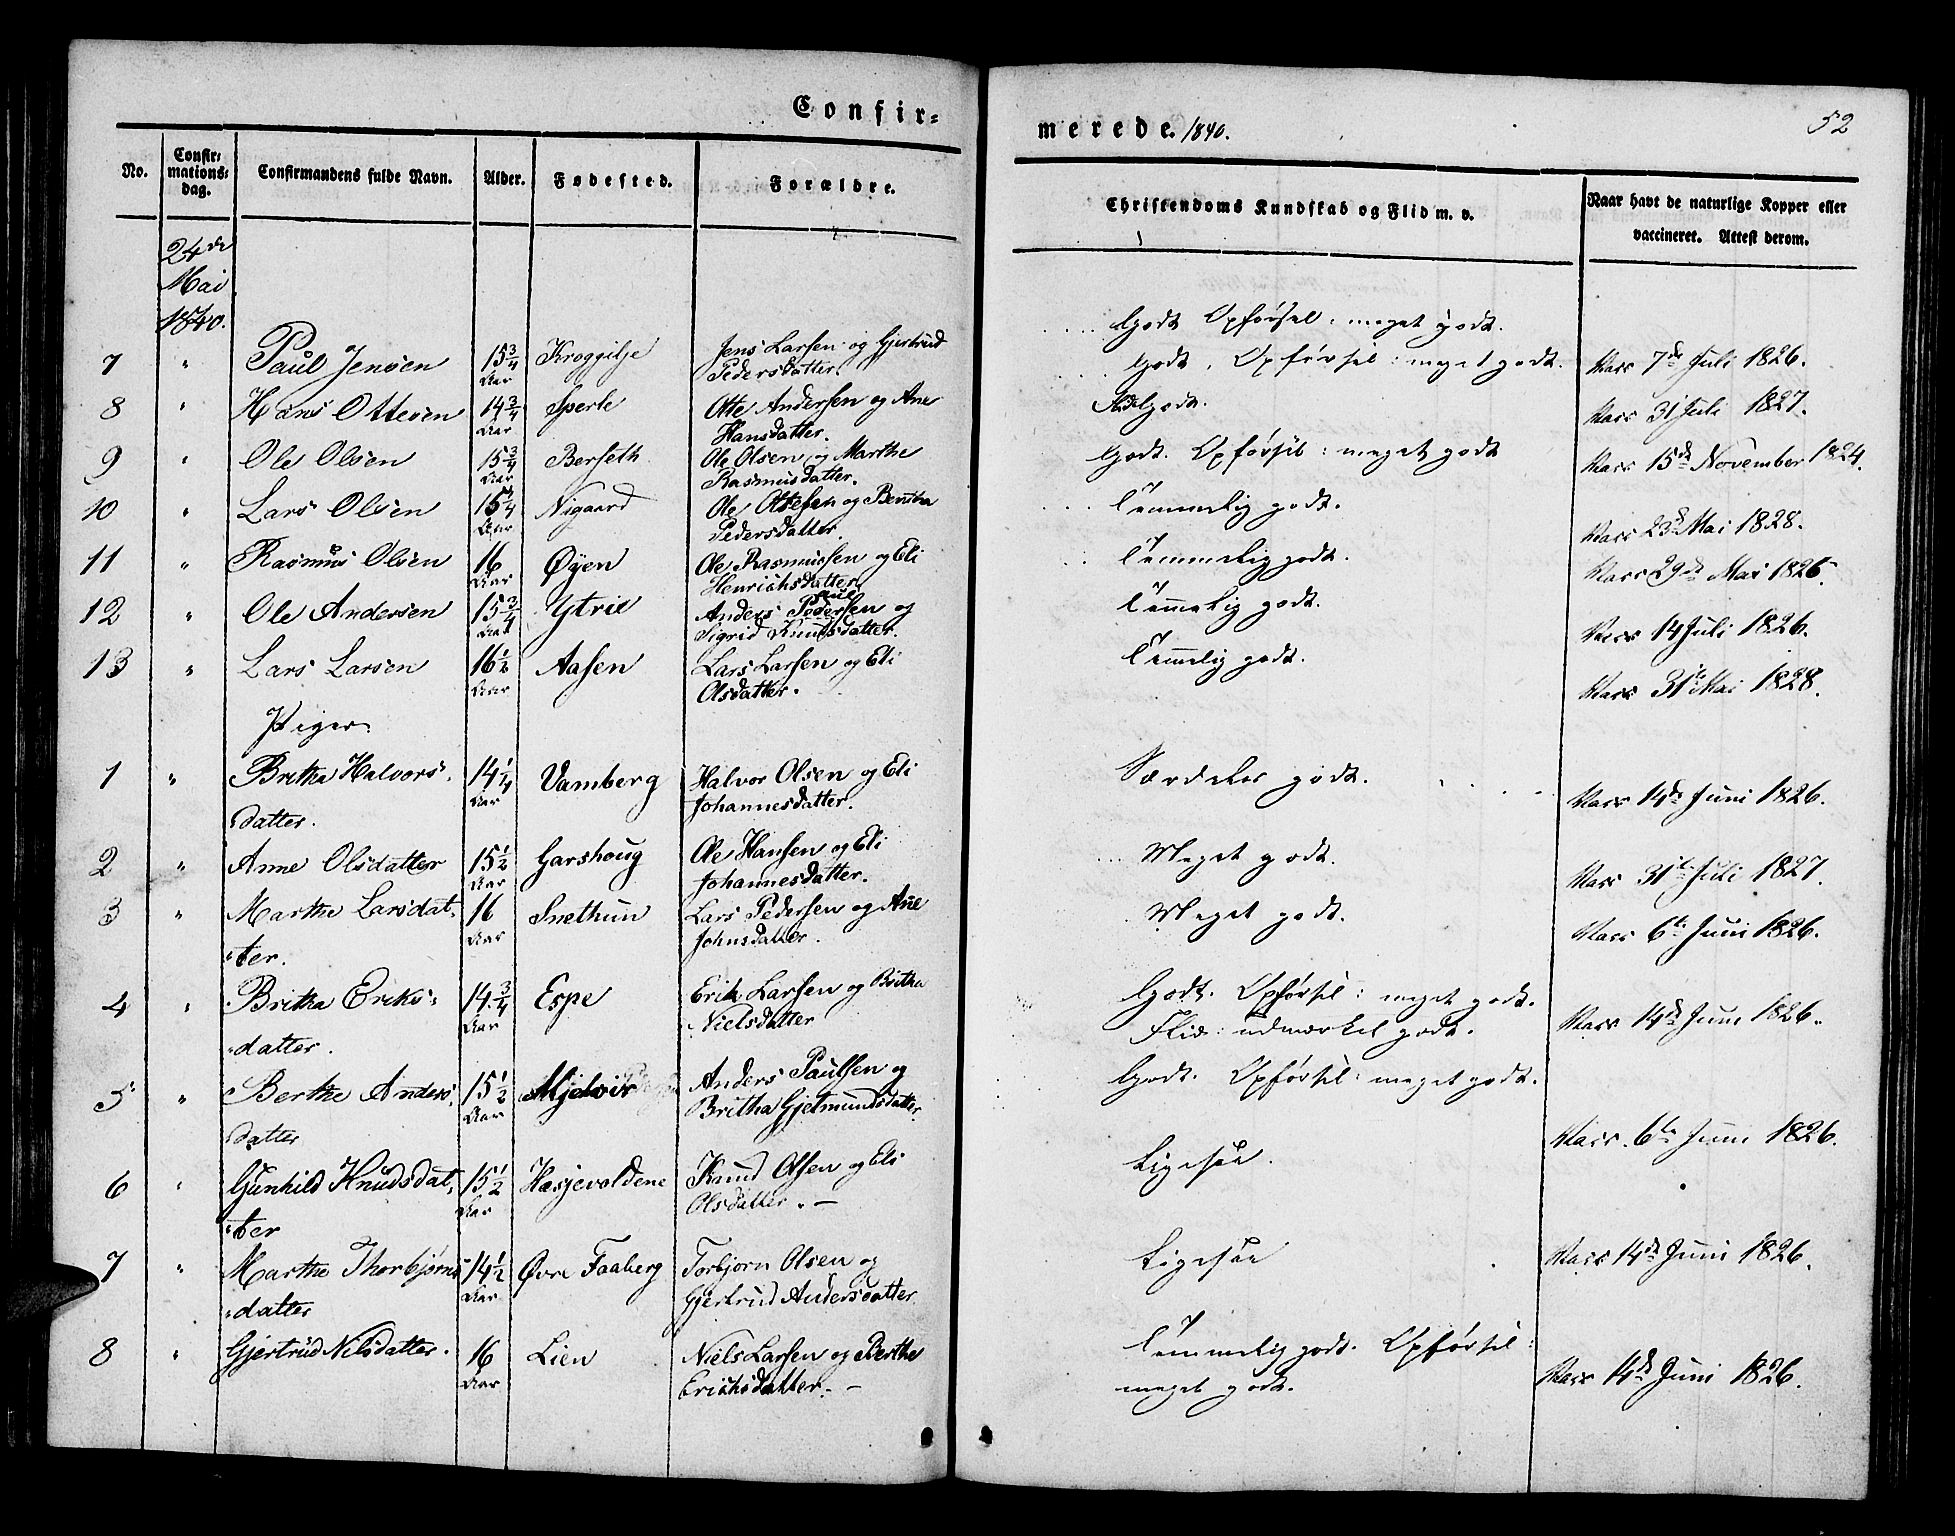 Confir=
merede. 1840.
52
No.
Confir=
mations=
dag.
Confirmandens fulde Navn.
Alder.
Fødested.
Forældre.
Christendoms Kundskab og Flid m. v.
Naar havt de naturlige Kopper eller
vaccineret. Attest derom.
24de
Mai
1840.
Godt Opførsel: meget godt.
7 " Paul Jensen 15 3/4 Aar Kroggilje Jens Larsen og Gjertrud
Pedersdatter.
Godt, Opførsel: meget godt. Vacc 7de Juli 1826.
8 " Hans Ottesen 14 3/4 Aar Sperle Otte Andersen og Ane
Hansdatter.
Godt. Vacc 31 Juli 1827.
9 " Ole Olsen 15 3/4 Aar Berseth Ole Olsen og Marthe
Rasmusdatter.
Godt. Opførsel: meget godt Vacc 15de November 1824.
10 " Lars Olsen Aar Nigaard Ole Ottesen og Bentha
Pedersdatter.
Temmelig godt. Vacc 23d Mai 1828.
11 " Rasmus Olsen 16 Aar Øyen Ole Rasmussen og Eli
Henrichsdatter
Temmelig godt. Vacc 29de Mai 1826.
12 " Ole Andersen 15 3/4 Aar Ytrie Anders Pedersen og
Sigrid Knudsdatter.
Temmelig godt. Vacc 14 Juli 1826.
13 " Lars Larsen 16 1/2 Aar Aasen Lars Larsen og Eli
Olsdatter.
Temmelig godt. Vacc 31te Mai 1828.
Piger.
1 " Britha Halvors= 14 1/4 Aar Vamberg Halvor Olsen og Eli
datter. Johannesdatter.
Særdeles godt. Vacc 14de Juni 1826.
2 " Anne Olsdatter 15 1/2 Aar Garshoug Ole Hansen og Eli
Johannesdatter.
Meget godt. Vacc 31te Juli 1827.
3 " Marthe Larsdat= 16 Aar Snethun Lars Pedersen og Ane
ter. Johnsdatter.
Meget godt. Vacc 6te Juni 1826.
4 " Britha Eriks= 14 3/4 Aar Espe Erik Larsen og Britha
datter. Nielsdatter
Godt. Opførsel: meget godt.
Flid: udmærket godt. Vacc 14de Juni 1826.
5 " Berthe Anders= 15 1/2 Aar Mjelvir Anders Paulsen og
datter Britha Gjetmundsdatter.
Godt. Opførsel: meget godt. Vacc. 6te Juni 1826.
6 " Gunhild Knudsdat= 15 1/2 Aar Hasjevoldene Knud Olsen og Eli
ter Olsdatter. —
Ligesaa.
7 " Marthe Thorbjørns= 14 1/2 Aar Øvre Faaberg Torbjørn Olsen og
datter Gjertrud Andersdatter
Ligesaa Vacc 14de Juni 1826.
8 " Gjertrud Nilsdatter. 16 Aar Lien Niels Larsen og Berthe
Erichsdatter. —
Temmelig godt. Opførsel:
meget godt. Vacc 14de Juni 1826.